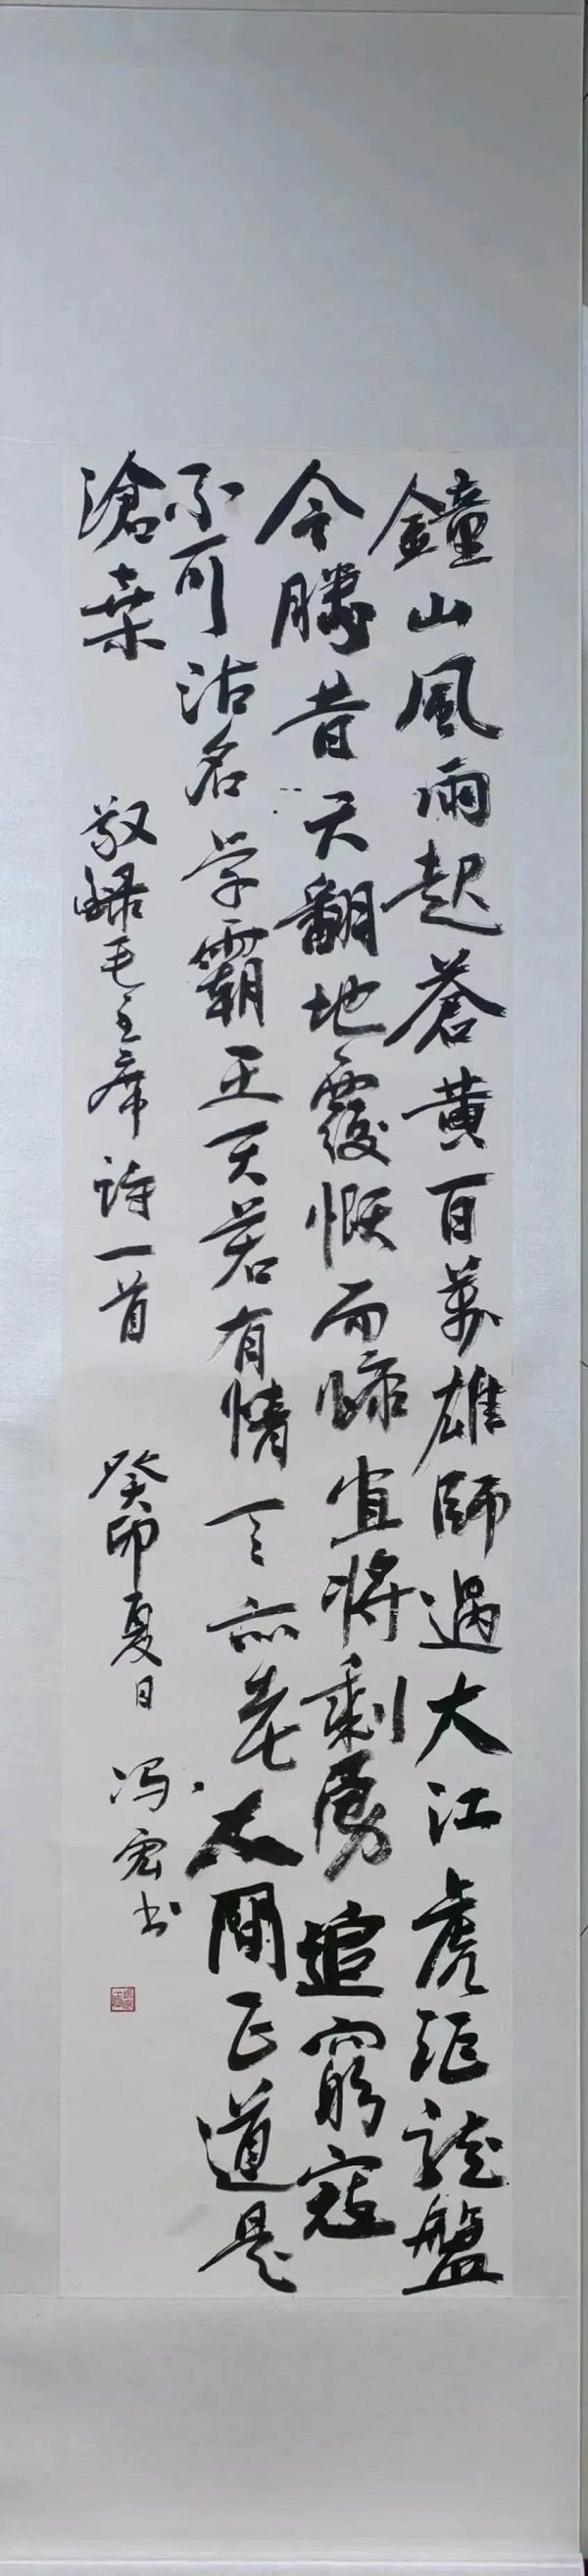 鐘山風雨起蒼黄百萬雄師過大江虎踞龍盤
今勝昔天翻地覆慨而慷宜将剩勇追窮寇
不可沽名学霸王天若有情天亦老人間正道是
滄桑
敬録毛主席诗一首 癸卯夏日 冯宏书